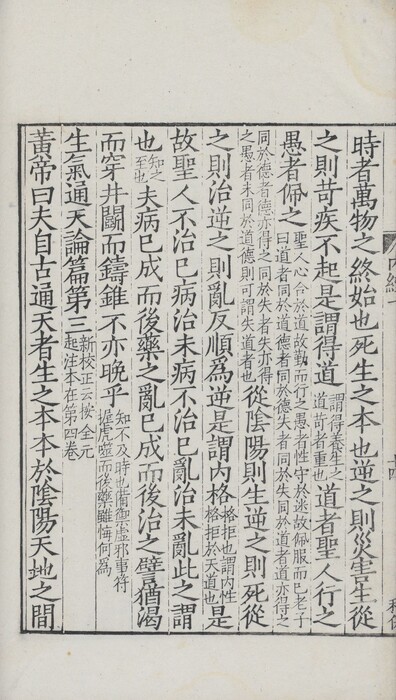 時者萬物之終始也死生之本也逆之則災害生從
之則苛疾不起是謂得道謂得養生之道苛者重也道者聖人行之
愚者佩之聖人心合於道故勤而行之愚者性守於迷故佩服而已老子曰道者同於道德者同於德失者同於失同於道者道亦得之
同於德者德亦得之同於失者失亦得之愚者未同於道德則可謂失道者也從陰陽則生逆之則死從
之則治逆之則亂反順為逆是謂内格格拒也謂内性格拒於天道也是
故聖人不治已病治未病不治已亂治未亂此之謂
也知之至也夫病已成而後藥之亂已成而後治之譬猶渴
而穿井鬭而鑄錐不亦晚乎知不及時也備禦虛邪事符握虎噬而後藥雖悔何為
生氣通天論篇第三新校正云按全元起注本在第四卷
黃帝曰夫自古通天者生之本本於陰陽天地之間